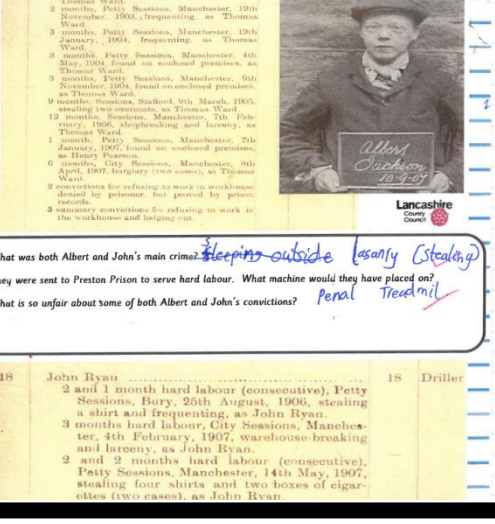 Thomas Ward.
2 months, Petty Sessions, Manchester, 19th
November, 1903, frequenting, as Thomas
Ward.
3 months, Petty Sessions, Manchester, 19th
January, 1904, frequenting, as Thomas
Ward.
3 months, Petty Sessions, Manchester, 4th
May, 1904, found on enclosed premises, as
Thomas Ward.
3 months, Petty Sessions, Manchester, 9th
November, 1904, found on enclosed premises,
as Thomas Ward.
9 months, Sessions, Stafford, 9th March, 1905,
stealing two overcoats, as Thomas Ward.
12 months, Sessions, Manchester, 7th Feb-
ruary, 1906, shopbreaking and larceny, as
Thomas Ward.
1 month, Petty Sessions, Manchester, 7th
January, 1907, found on enclosed premises,
as Henry Pearson.
6 months, City Sessions, Manchester, 8th
April, 1907, burglary (two cases), as Thomas
Ward.
2 convictions for refusing to work in workhouse
denied by prisoner, but proved by prison
records.
3 summary convictions for refusing to work in
the workhouse and lodging out.
Albert
Jackson
10-9-07
Lancashire
County
Council
hat was both Albert and John's main crime? Sleeping outside Lasanfy (Stealing)
ey were sent to Preston Prison to serve hard labour. What machine would they have placed on?
hat is so unfair about some of both Albert and John's convictions? Penal Treadmil
18 John Ryan 18 Driller
2 and 1 month hard labour (consecutive), Petty
Sessions, Bury, 25th August, 1906, stealing
a shirt and frequenting, as John Ryan.
3 months hard labour, City Sessions, Manches-
ter, 4th February, 1907, warehouse-breaking
and larceny, as John Ryan.
2 and 2 months hard labour (consecutive),
Petty Sessions, Manchester, 14th May, 1907,
stealing four shirts and two boxes of cigar-
ettes (two cases), as John Ryan.